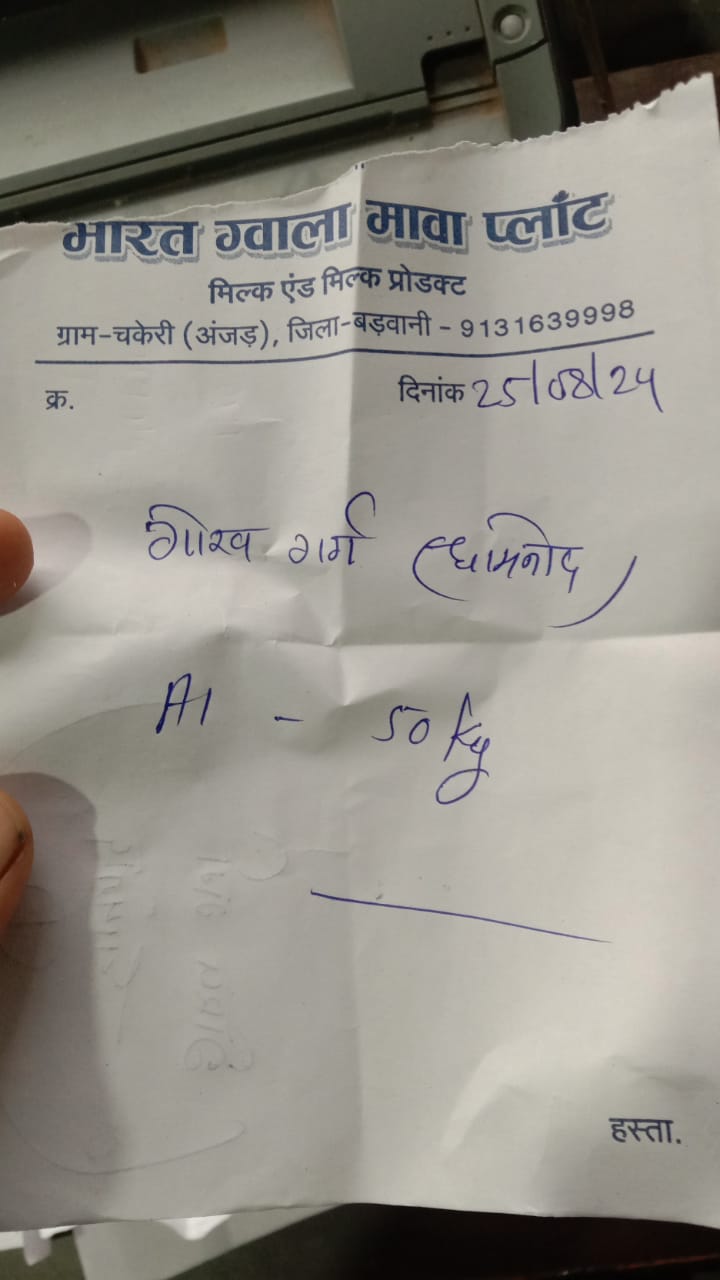 भारत ग्वाला मावा प्लांट
मिल्क एंड मिल्क प्रोडक्ट
ग्राम-चकेरी (अंजड़), जिला-बड़वानी - 9131639998
क्र. दिनांक 25/08/24
गोरव गर्ग (धामनोद)
A1 - 50 kg
हस्ता.